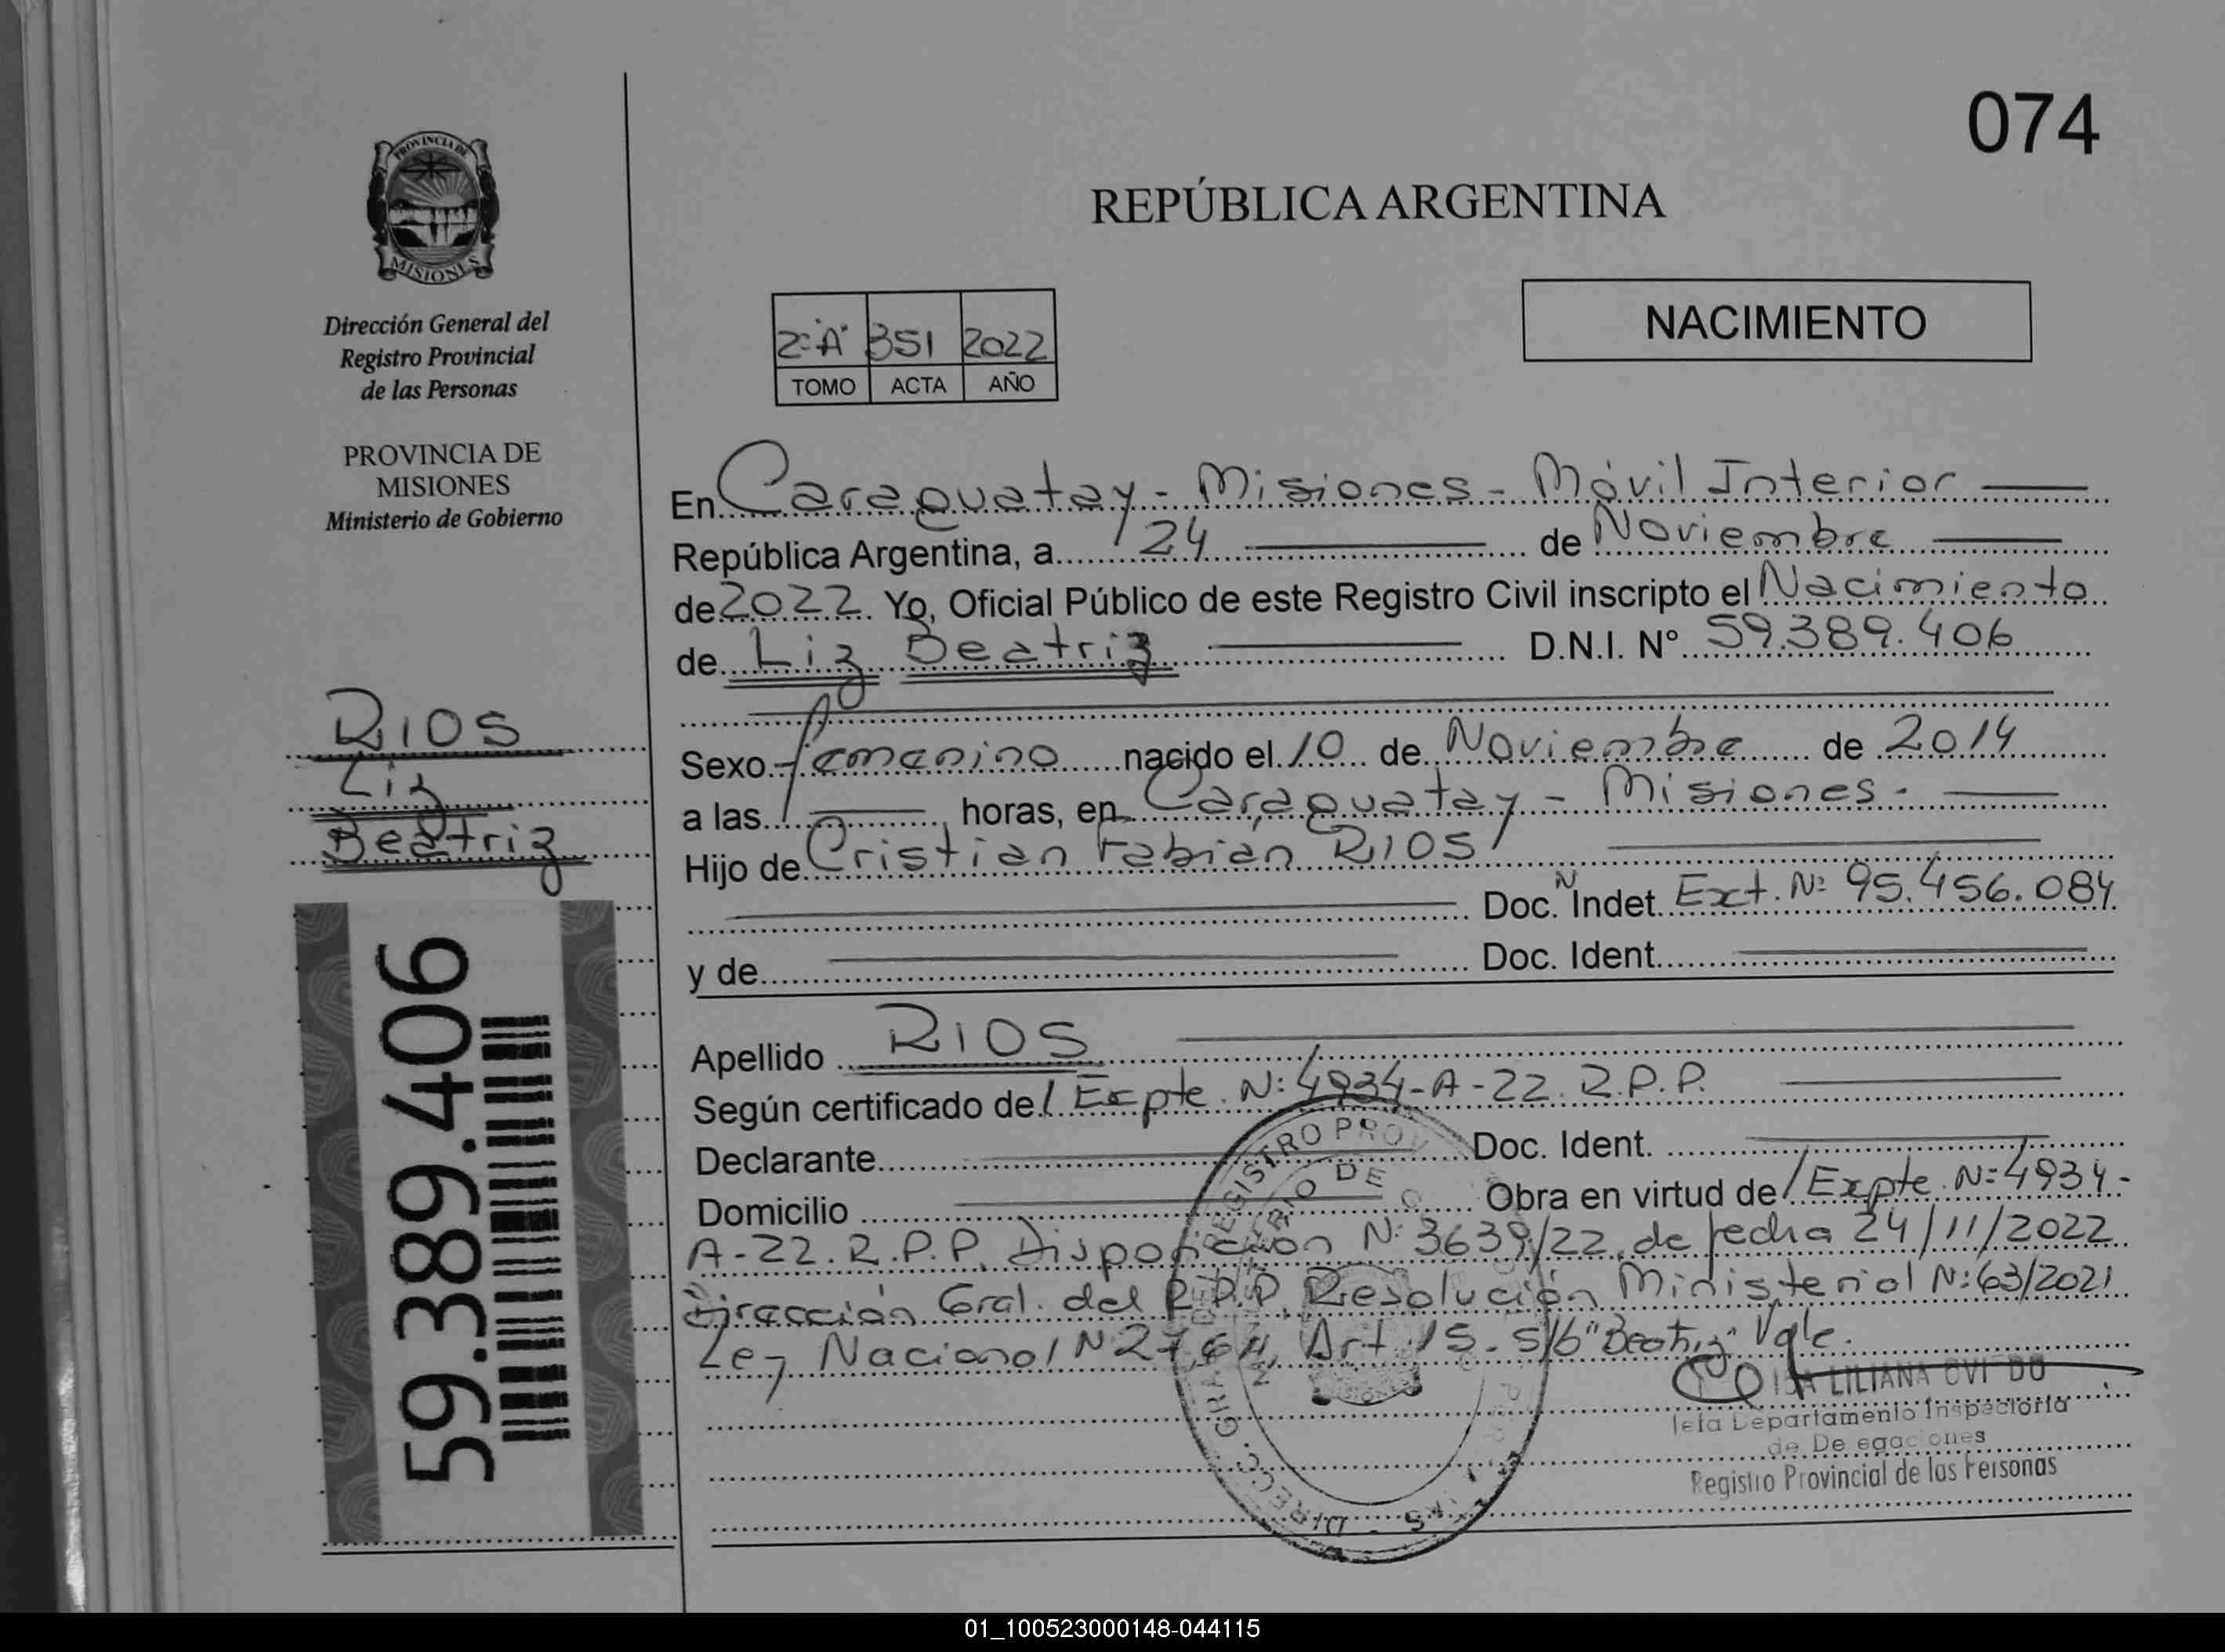 074
PROVINCIA DE
MISIONES
REPÚBLICA ARGENTINA
NACIMIENTO
Dirección General del
Registro Provincial
de las Personas
PROVINCIA DE
MISIONES
Ministerio de Gobierno
2º "A" 351 2022
TOMO ACTA AÑO
En Caraguatay - Misiones - Móvil Interior
República Argentina, a 24 de Noviembre
de 2022. Yo, Oficial Público de este Registro Civil inscripto el Nacimiento
de Liz Beatriz D.N.I. Nº 59.389.406
RIOS
Liz
Beatriz
Sexo femenino nacido el 10 de Noviembre de 2014
a las horas, en Caraguatay - Misiones -
Hijo de Cristian Fabian RIOS
Doc. Indet. Ext. Nº 95.456.084
y de Doc. Ident.
Apellido RIOS
Según certificado de Expte. Nº 4934-A-22. R.P.P.
Declarante Doc. Ident.
Domicilio Obra en virtud de Expte. Nº 4934-
A-22. R.P.P. Disposición Nº 3639/22, de fecha 24/11/2022
Dirección Gral. del R.P.P. Resolución Ministerial Nº 63/2021
Ley Nacional Nº Art. 15. S/b "Beatriz" Vale.
59.389.406
LILIANA
Departamento Inspectoria
de
Registro Provincial de las Personas
01_100523000148-044115